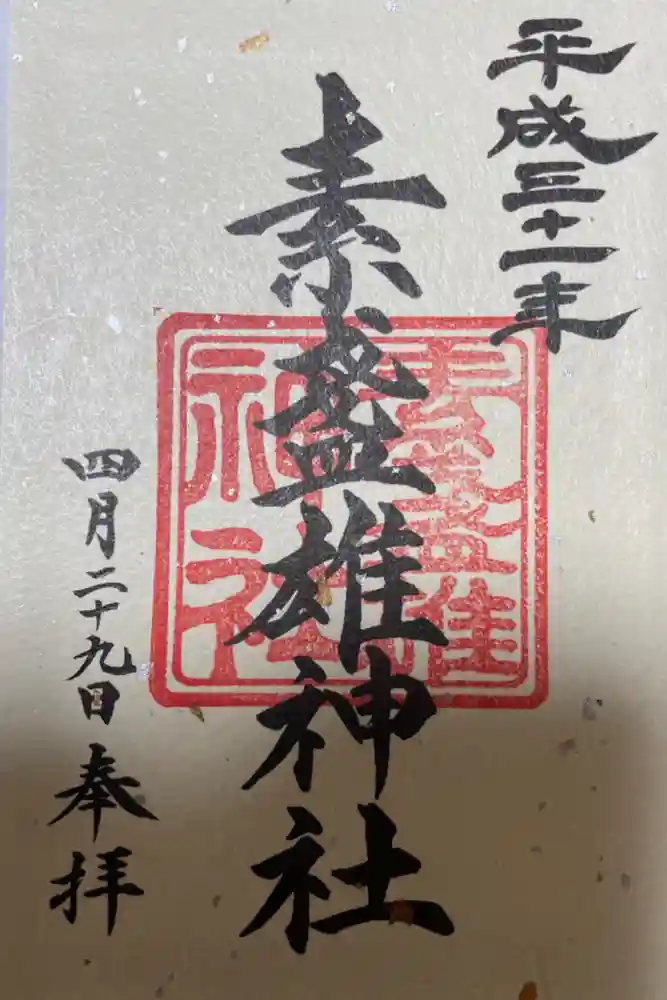 平成三十一年
素盞雄神社
素盞雄
神社
四月二十九日
奉拝